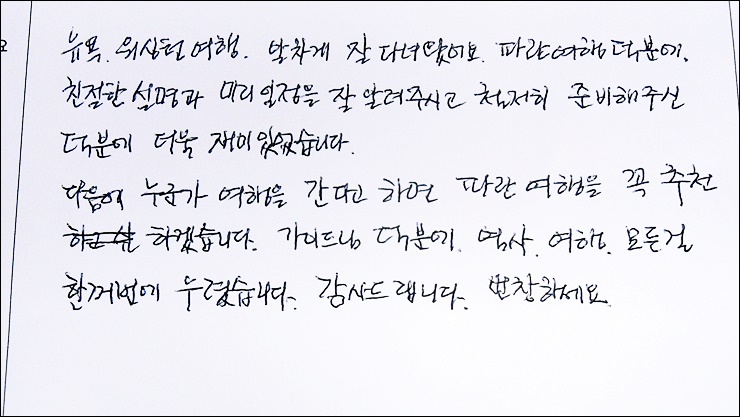 뉴욕. 워싱턴 여행. 알차게 잘 다녀왔어요. 파란여행 덕분에.
친절한 설명과 미리 일정을 잘 알려주시고 철저히 준비해주신
덕분에 더욱 재미있었습니다.
다음에 누군가 여행을 간다고 하면 파란 여행을 꼭 추천
하겠습니다. 가이드님 덕분에. 역사. 여행. 모든걸
한꺼번에 누렸습니다. 감사드립니다. 번창하세요.